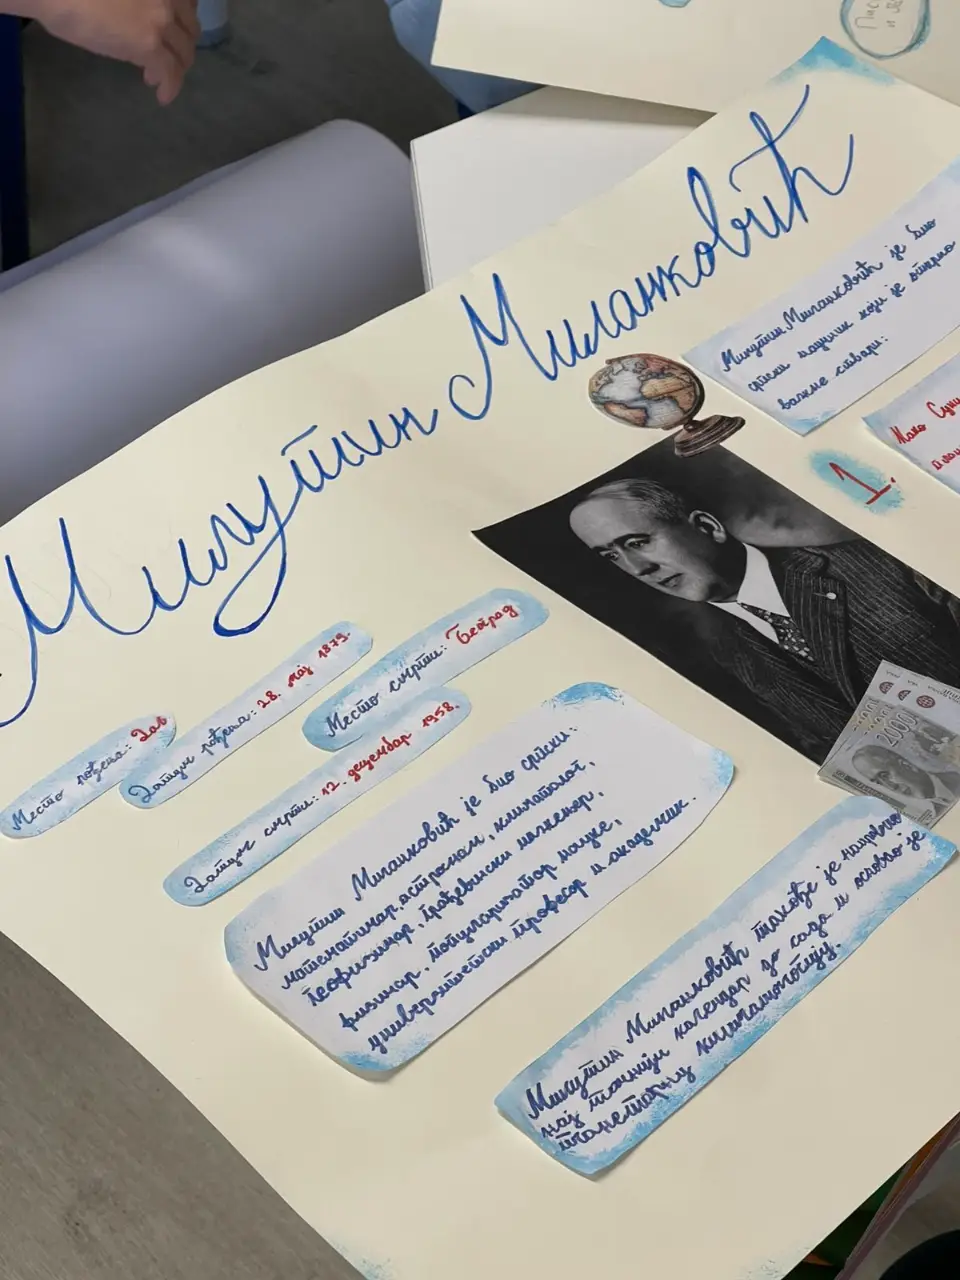 Милутин Миланковић
Милутин Миланковић је био
српски научник који је открио
важне ствари:
1.
Како Сунц
план
Место рођења: Даљ
Датум рођења: 28. мај 1879.
Место смрти: Београд
Датум смрти: 12. децембар 1958.
Милутин Миланковић је био српски:
математичар, астроном, климатолог,
геофизичар, грађевински инжењер,
физичар, популаризатор науке,
универзитетски професор и академик.
2000
Милутин Миланковић такође је направио
нај тачнији календар до сада и основао је
планетарну климатологију.